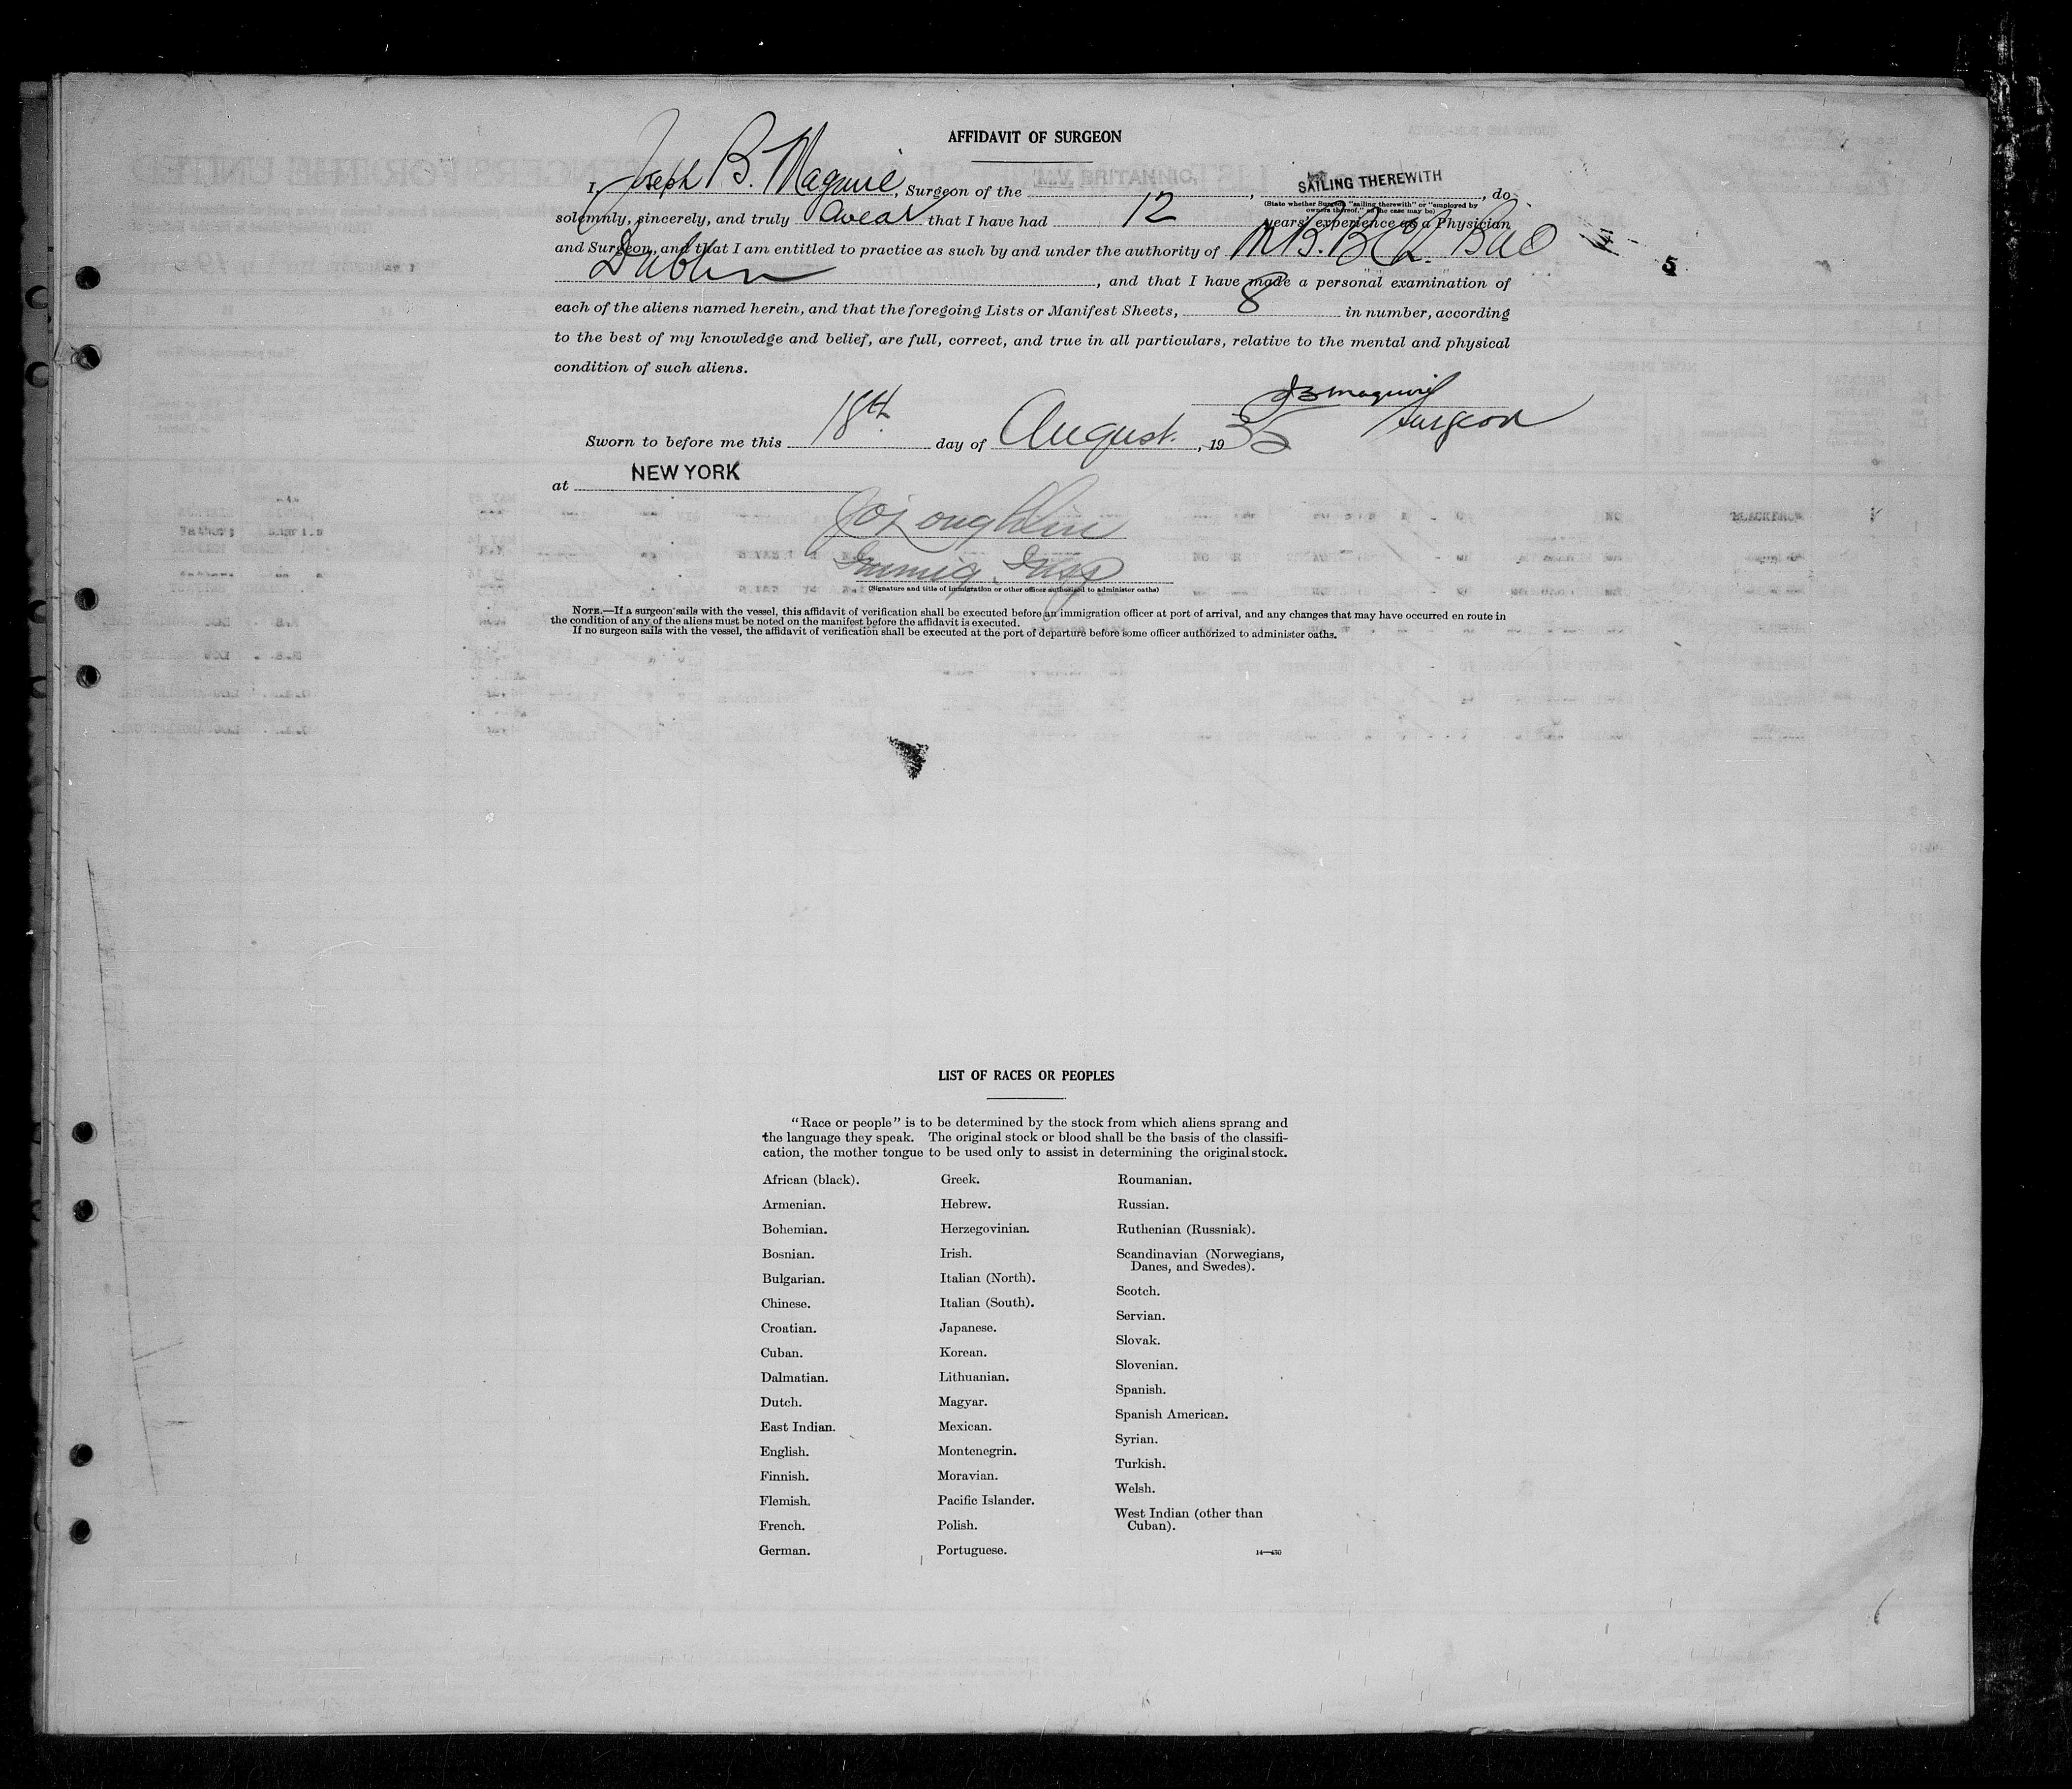 AFFIDAVIT OF SURGEON
I, Joseph B. Maguire, Surgeon of the M.V. BRITANNIC, SAILING THEREWITH, do
(State whether Surgeon "sailing therewith" or "employed by
owners thereof," as the case may be)
solemnly, sincerely, and truly swear that I have had 12 years' experience as a Physician
and Surgeon, and that I am entitled to practice as such by and under the authority of M.B. B.Ch. BAO
Dublin, and that I have made a personal examination of
each of the aliens named herein, and that the foregoing Lists or Manifest Sheets, 8 in number, according
to the best of my knowledge and belief, are full, correct, and true in all particulars, relative to the mental and physical
condition of such aliens.
5
JB Maguire
Surgeon
Sworn to before me this 18th day of August, 1935
at NEW YORK
Immig. Insp
(Signature and title of immigration or other officer authorized to administer oaths)
NOTE.—If a surgeon sails with the vessel, this affidavit of verification shall be executed before an immigration officer at port of arrival, and any changes that may have occurred en route in
the condition of any of the aliens must be noted on the manifest before the affidavit is executed.
If no surgeon sails with the vessel, the affidavit of verification shall be executed at the port of departure before some officer authorized to administer oaths.
LIST OF RACES OR PEOPLES
"Race or people" is to be determined by the stock from which aliens sprang and
the language they speak. The original stock or blood shall be the basis of the classifi-
cation, the mother tongue to be used only to assist in determining the original stock.
African (black).
Armenian.
Bohemian.
Bosnian.
Bulgarian.
Chinese.
Croatian.
Cuban.
Dalmatian.
Dutch.
East Indian.
English.
Finnish.
Flemish.
French.
German.
Greek.
Hebrew.
Herzegovinian.
Irish.
Italian (North).
Italian (South).
Japanese.
Korean.
Lithuanian.
Magyar.
Mexican.
Montenegrin.
Moravian.
Pacific Islander.
Polish.
Portuguese.
Roumanian.
Russian.
Ruthenian (Russniak).
Scandinavian (Norwegians,
Danes, and Swedes).
Scotch.
Servian.
Slovak.
Slovenian.
Spanish.
Spanish American.
Syrian.
Turkish.
Welsh.
West Indian (other than
Cuban).
14—430